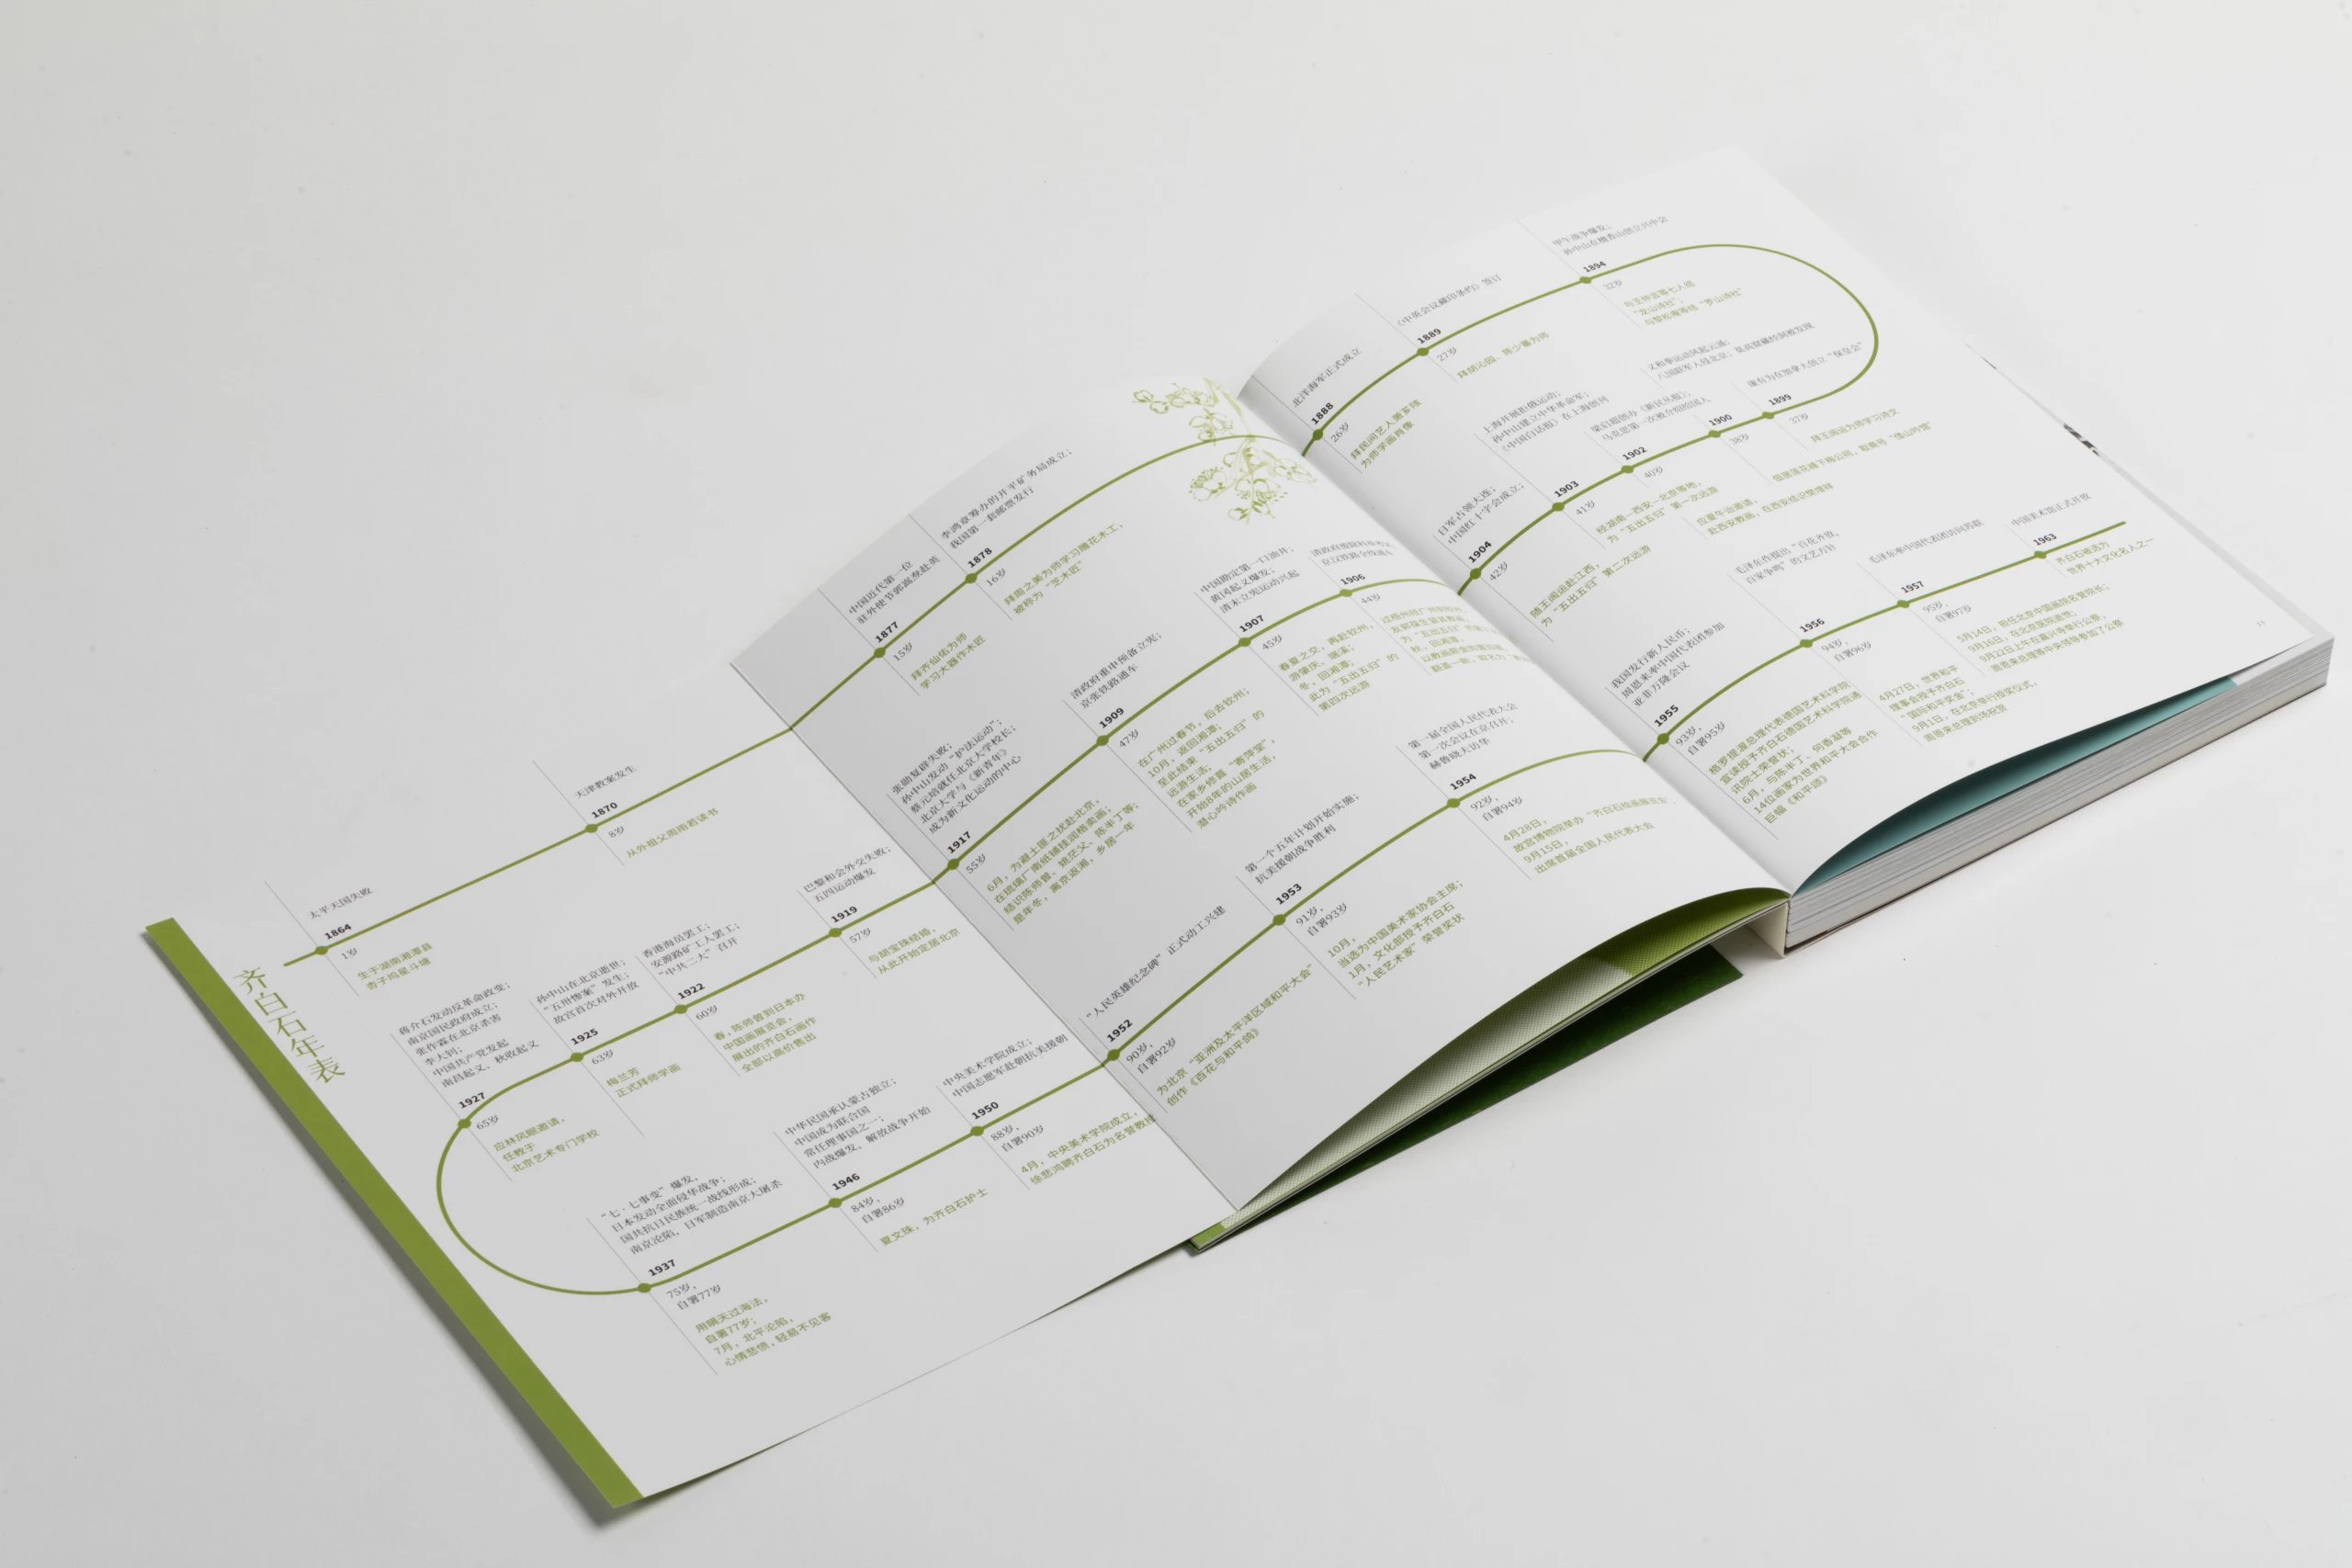 齐白石年表
太平天国失败
1864
1岁
生于湖南湘潭县
杏子坞星斗塘
天津教案发生
1870
8岁
从外祖父周雨若读书
中国近代第一位
驻外使节郭嵩焘赴英
1877
15岁
拜齐仙佑为师
学习大器作木匠
李鸿章筹办的开平矿务局成立；
我国第一套邮票发行
1878
16岁
拜周之美为师学习雕花木工，
被称为“芝木匠”
北洋海军正式成立
1888
26岁
拜民间艺人萧芗陔
为师学画肖像
《中英会议藏印条约》签订
1889
27岁
拜胡沁园、陈少蕃为师
甲午战争爆发；
孙中山在檀香山创立兴中会
1894
32岁
与王仲言等七人结
“龙山诗社”；
与黎松庵等结“罗山诗社”
康有为在加拿大创立“保皇会”
1899
37岁
拜王闿运为师学习诗文
义和拳运动风起云涌；
八国联军入侵北京；莫高窟藏经洞被发现
1900
38岁
借居莲花峰下梅公祠，取斋号“借山吟馆”
梁启超创办《新民丛报》；
马克思第一次被介绍给国人
1902
40岁
应夏午诒邀请，
赴西安教画，在西安结识樊增祥
上海开展拒俄运动；
孙中山建立中华革命军；
《中国白话报》在上海创刊
1903
41岁
经湖南—西安—北京等地，
为“五出五归”第一次远游
日军占领大连；
中国红十字会成立；
1904
42岁
随王闿运赴江西，
为“五出五归”第二次远游
1906
44岁
中国勘定第一口油井；
黄冈起义爆发；
清末立宪运动兴起
1907
45岁
春夏之交，再赴钦州，
游肇庆、端溪；
冬，回湘潭；
此为“五出五归”的
第四次远游
清政府重申预备立宪；
京张铁路通车
1909
47岁
在广州过春节，后去钦州；
10月，返回湘潭；
至此结束“五出五归”的
远游生活；
在家乡修葺“寄萍堂”，
开始8年的山居生活，
潜心吟诗作画
张勋复辟失败；
孙中山发动“护法运动”；
蔡元培就任北京大学校长；
北京大学与《新青年》
成为新文化运动的中心
1917
55岁
6月，为避土匪之扰赴北京，
在琉璃厂南纸铺挂润格卖画；
结识陈师曾、姚茫父、陈半丁等；
是年冬，离京返湘，乡居一年
巴黎和会外交失败；
五四运动爆发
1919
57岁
与胡宝珠结婚，
从此开始定居北京
香港海员罢工；
安源路矿工人罢工；
“中共二大”召开
1922
60岁
春，陈师曾到日本办
中国画展览会，
展出的齐白石画作
全部以高价售出
孙中山在北京逝世；
“五卅惨案”发生；
故宫首次对外开放
1925
63岁
梅兰芳
正式拜师学画
蒋介石发动反革命政变；
南京国民政府成立；
张作霖在北京杀害
李大钊；
中国共产党发起
南昌起义、秋收起义
1927
65岁
应林风眠邀请，
任教于
北京艺术专门学校
“七·七事变”爆发，
日本发动全面侵华战争；
国共抗日民族统一战线形成；
南京沦陷，日军制造南京大屠杀
1937
75岁，
自署77岁
用瞒天过海法，
自署77岁；
7月，北平沦陷，
心情悲愤，轻易不见客
中华民国承认蒙古独立；
中国成为联合国
常任理事国之一；
内战爆发，解放战争开始
1946
84岁，
自署86岁
夏文珠，为齐白石护士
中央美术学院成立；
中国志愿军赴朝抗美援朝
1950
88岁，
自署90岁
4月，中央美术学院成立，
徐悲鸿聘齐白石为名誉教授
“人民英雄纪念碑”正式动工兴建
1952
90岁，
自署92岁
为北京“亚洲及太平洋区域和平大会”
创作《百花与和平鸽》
第一个五年计划开始实施；
抗美援朝战争胜利
1953
91岁，
自署93岁
10月，
当选为中国美术家协会主席；
1月，文化部授予齐白石
“人民艺术家”荣誉奖状
第一届全国人民代表大会
第一次会议在京召开；
赫鲁晓夫访华
1954
92岁，
自署94岁
4月28日，
故宫博物院举办“齐白石绘画展览会”；
9月15日，
出席首届全国人民代表大会
我国发行新人民币；
周恩来率中国代表团参加
亚非万隆会议
1955
93岁，
自署95岁
格罗提渥总理代表德国艺术科学院
宣读授予齐白石德国艺术科学院通
讯院士荣誉状；
6月，与陈半丁、何香凝等
14位画家为世界和平大会合作
巨幅《和平颂》
毛泽东提出“百花齐放，
百家争鸣”的文艺方针
1956
94岁，
自署96岁
4月27日，世界和平
理事会授予齐白石
“国际和平奖金”；
9月1日，在北京举行授奖仪式，
周恩来总理到场祝贺
毛泽东率中国代表团访问苏联
1957
95岁，
自署97岁
5月14日，担任北京中国画院名誉院长；
9月16日，在北京医院逝世；
9月22日上午在嘉兴寺举行公祭，
周恩来总理等中央领导参加了公祭
中国美术馆正式开放
1963
齐白石被选为
世界十大文化名人之一